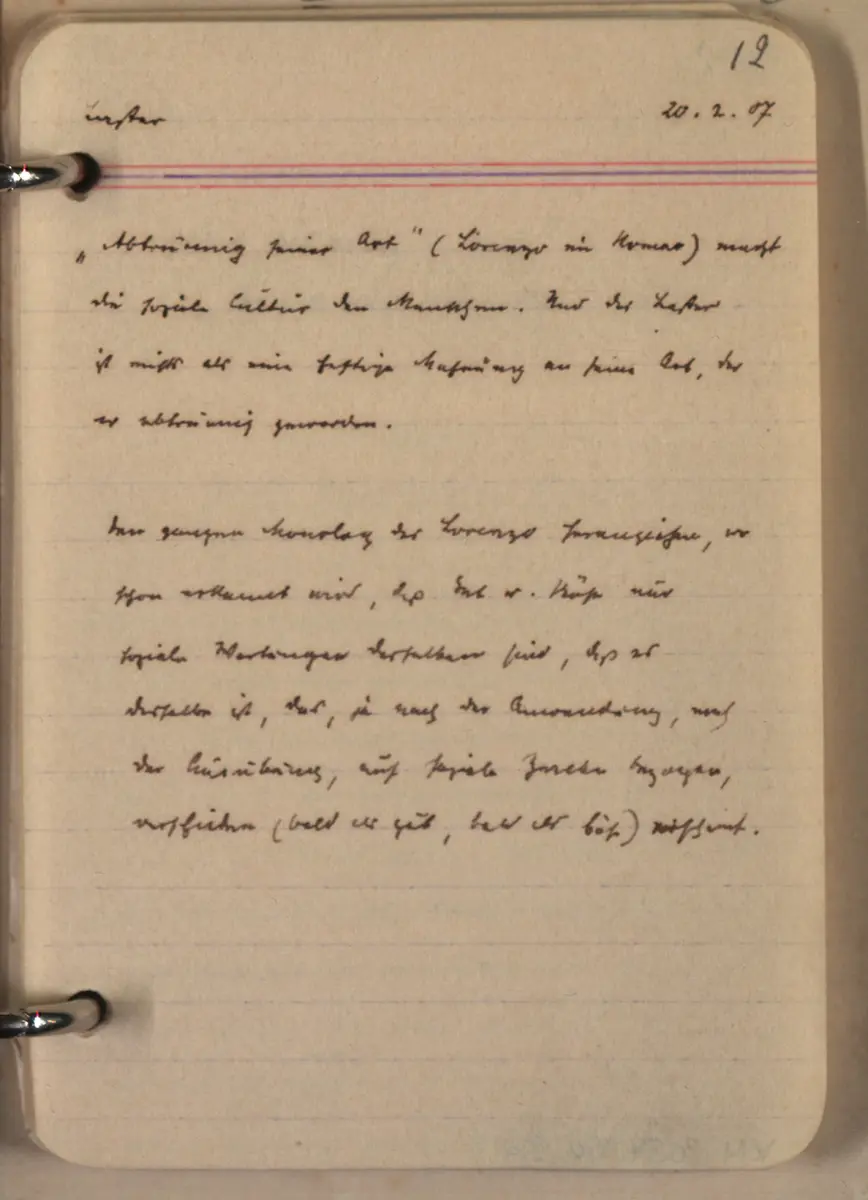 12
Laster 20.2.07
„Abtrünnig seiner Art“ (Lorenzo im Romeo) macht
die soziale Cultur den Menschen. Und das Laster
ist nichts als eine heftige Mahnung an seine Art, der
er abtrünnig geworden.
Den ganzen Monolog des Lorenzo heranziehen, wo
schon erkannt wird, daß Gut u. Böse nur
soziale Wertungen desselben sind, daß es
dasselbe ist, das, je nach der Anwendung, nach
der Ausübung, auf soziale Zwecke bezogen,
verschieden (bald als gut, bald als böse) erscheint.